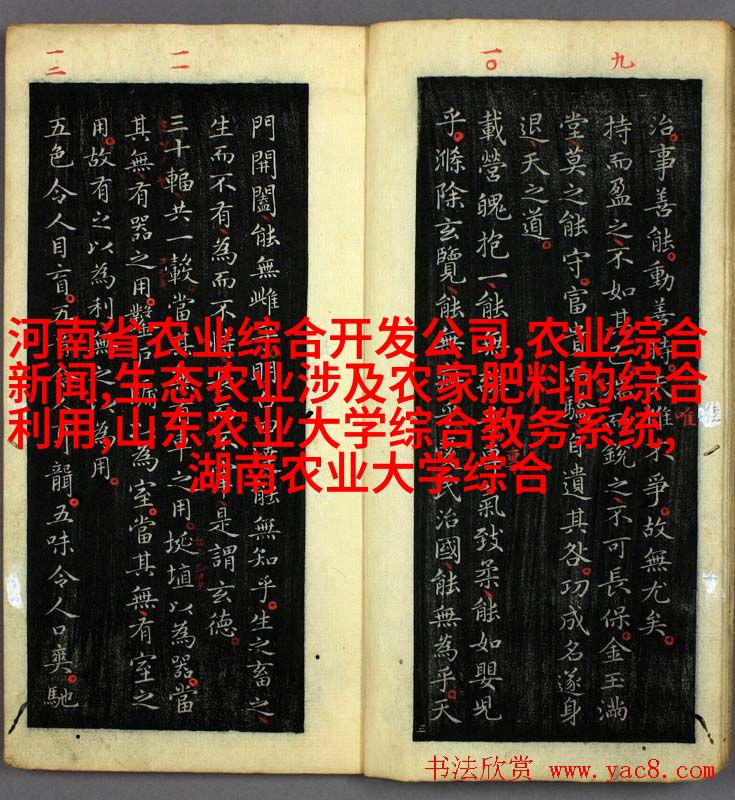 河南省农业综合开发公司,农业综合
新闻,生态农业涉及农家肥料的综合
利用,山东农业大学综合教务系统,
湖南农业大学综合
九
一〇
一一
一二
治。事善能。動善時。夫唯不爭。故無尤矣。
唯
持而盈之。不如其 銳之。不可長保。金玉滿
堂。莫之能守。富貴 驕。自遺其咎。功成名遂身
退。天之道。
載營魄抱一。能無 氣致柔。能如嬰兒
乎。滌除玄覽。能無 民治國。能無為乎。天
門開闔。能無雌乎。明白 能無知乎。生之畜之。
生而不有。為而不恃 是謂玄德。
三十輻。共一轂。當其 有車之用。埏埴以為器。當
其無。有器之用。鑿戶牖 為室。當其無。有室之
用。故有之以為利。無之以為用。
五色令人目盲。五 令人耳聾。五味令人口爽。馳
书法欣赏 www.yac8.com